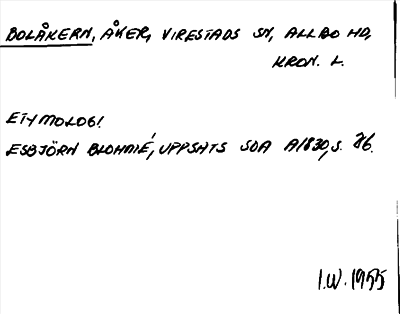 BOLÅKERN, ÅKER, VIRESTADS SN, ALLBO HD,
KRON. L.
ETYMOLOGI
ESBJÖRN BLOHMÉ, UPPSATS SOA A1830, S. 86.
I.W. 1955